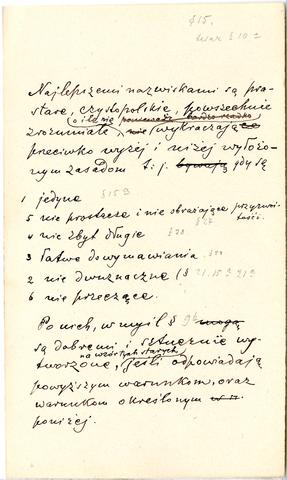 § 15.
teraz § 10 2
Najlepszemi nazwiskami są pro-
stare, czystopolskie, powszechnie
o ile nie ponieważ bardzo rzadko
zrozumiałe nie wykraczające
przeciwko wyżej i niżej wyłożo-
nym zasadom t: j. bywają gdy są
1 jedyne § 15 9
5 nie prostacze i nie obrażające przyzwoi-
tości.
4 nie zbyt długie § 20
3 łatwe do wymawiania.
2 nie dwuznaczne (§ 21. 15 § 21 9
6 nie przeczące.
Po nich, w myśl § 9 mogą
są dobremi i sztucznie wy-
na wzór tych starych
tworzone, jeśli odpowiadają
powyższym warunkom, oraz
warunkom określonym w n.
poniżej.